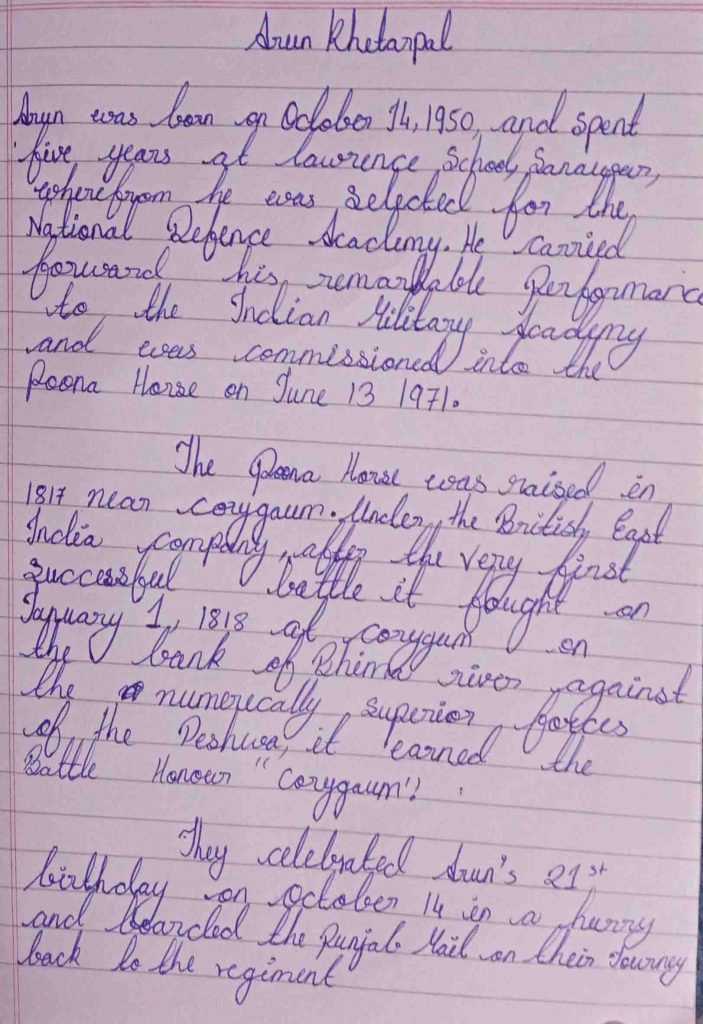 Arun Khetarpal
Arun was born on October 14, 1950, and spent
five years at lawrence School, Sanawar,
wherefrom he was selected for the
National Defence Academy. He carried
forward his remarkable Performance
to the Indian Military Academy
and was commissioned into the
Poona Horse on June 13 1971.
The Poona Horse was raised in
1817 near corygaum. Under the British East
India company, after the very first
successful battle it fought on
January 1, 1818 at corygum on
the bank of Bhima river against
the numerically superior forces
of the Peshwa, it earned the
Battle Honour "Corygaum".
They celebrated Arun's 21st
birthday on October 14 in a hurry
and boarded the Punjab Mail on their Journey
back to the regiment